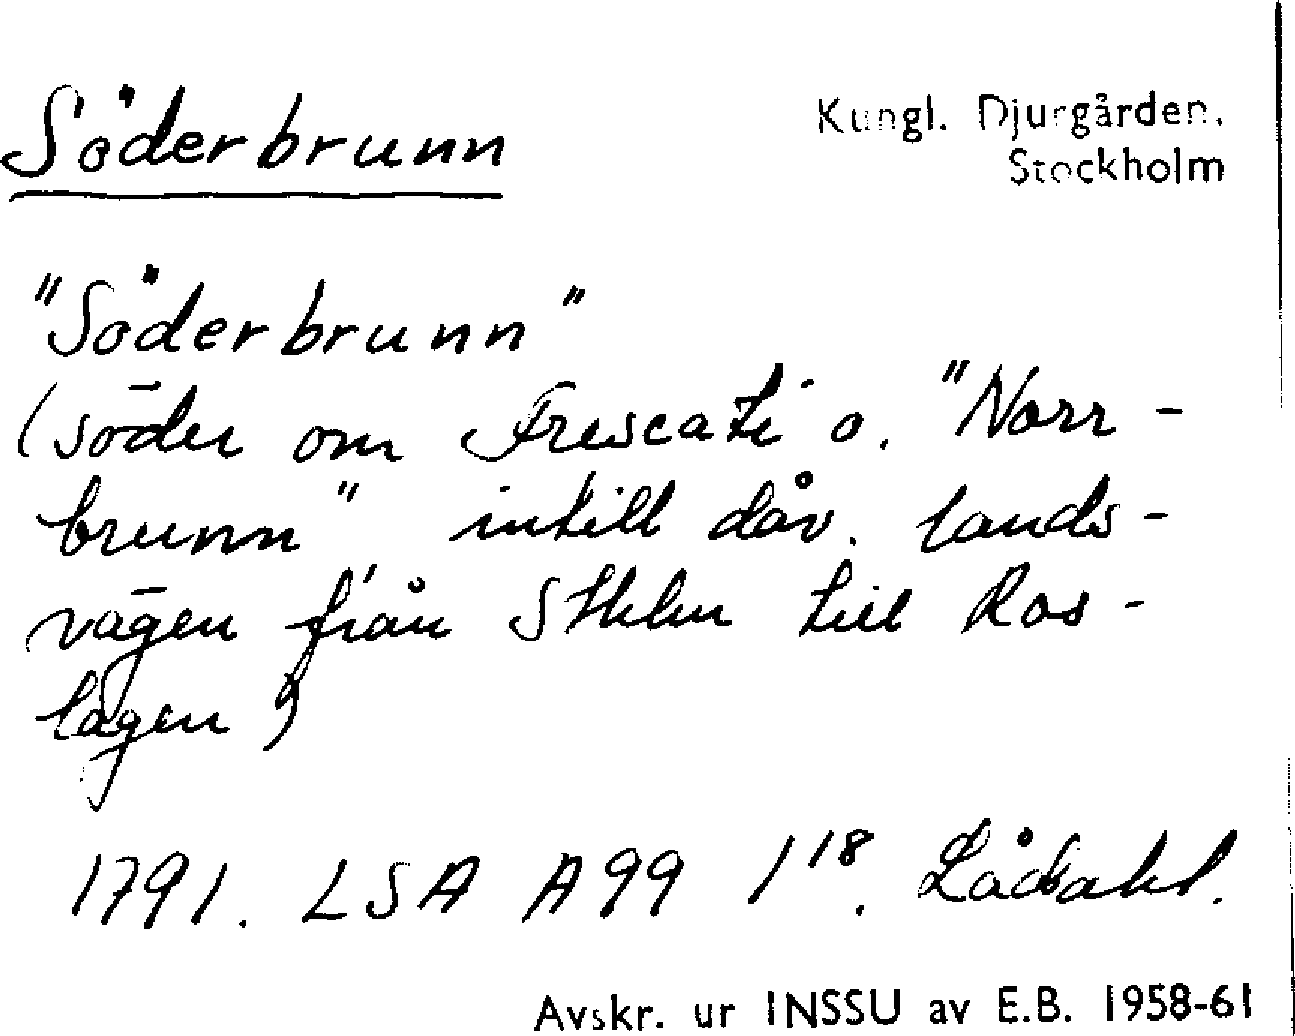 Söderbrunn
Kungl. Djurgården.
Stockholm
"Söderbrunn"
(söder om Frescati o. "Norr-
brunn" intill dåv. lands-
vägen från Sthlm till Ros-
lagen)
1791. LSA A99 1¹¹⁸. Lådakt.
Avskr. ur INSSU av E.B. 1958-61